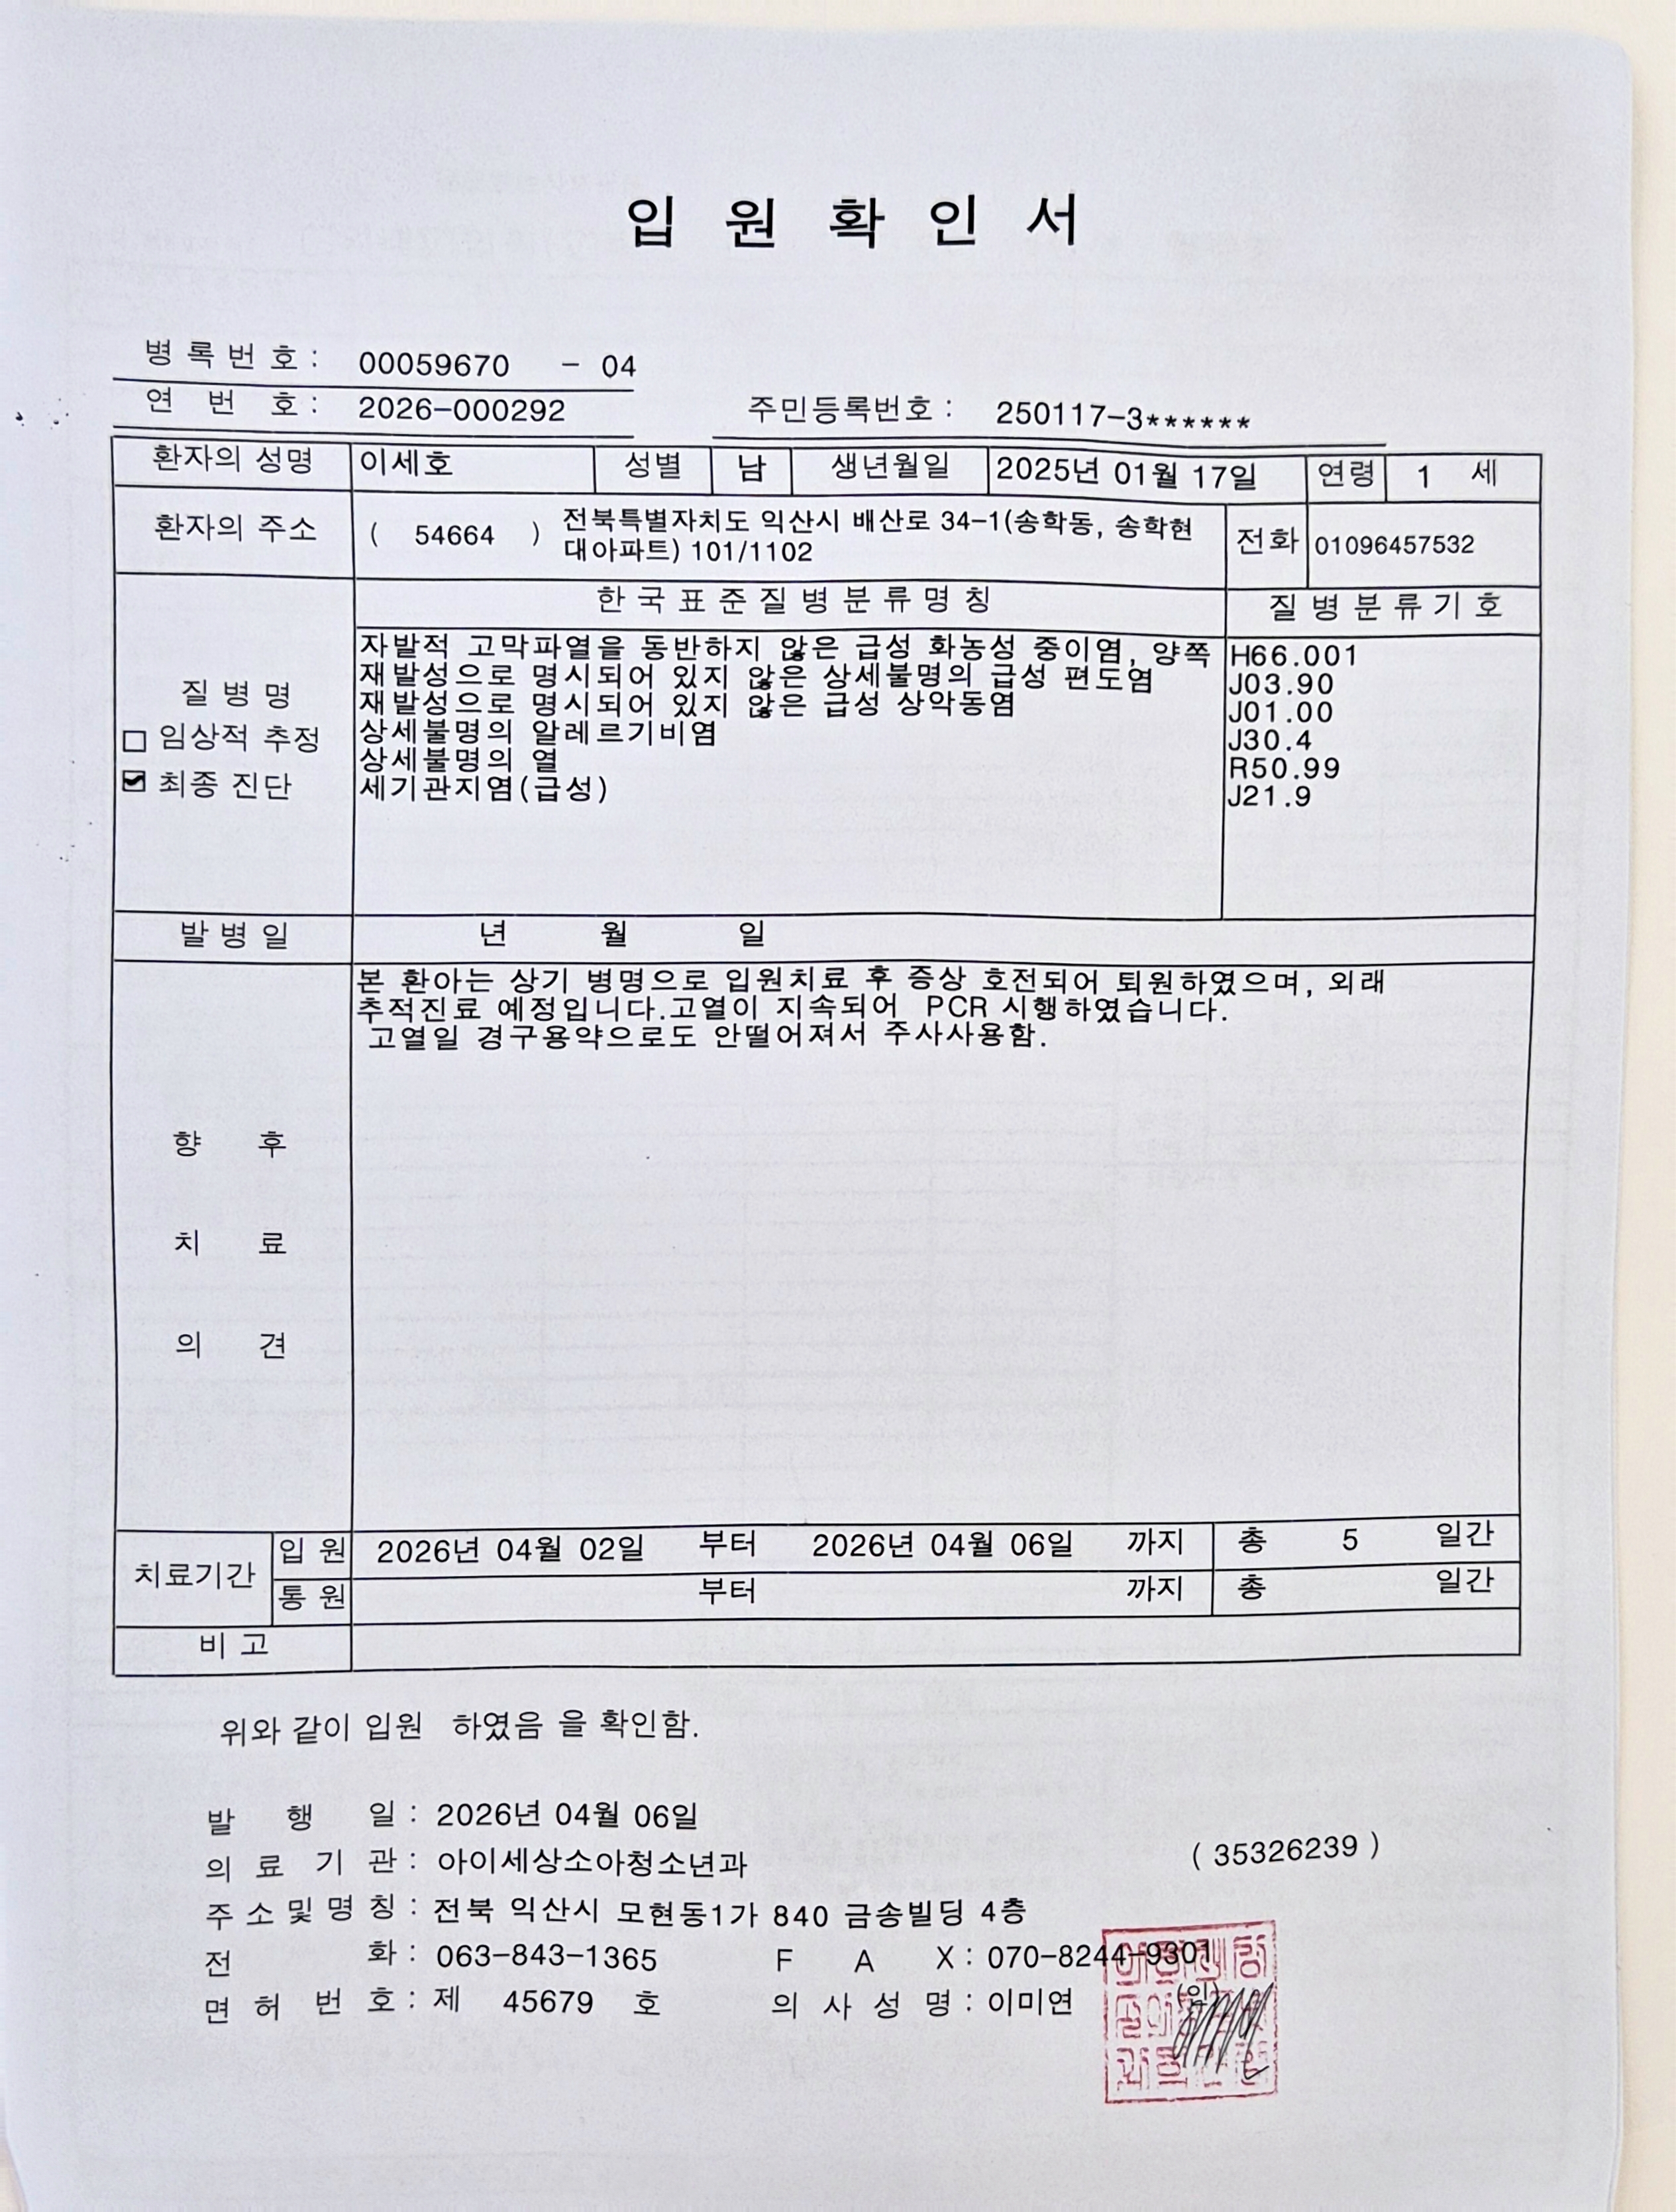 입 원 확 인 서
병 록 번 호 : 00059670 - 04
연 번 호 : 2026-000292 주민등록번호 : 250117-3******
환자의 성명 이세호 성별 남 생년월일 2025년 01월 17일 연령 1 세
환자의 주소 ( 54664 ) 전북특별자치도 익산시 배산로 34-1(송학동, 송학현
대아파트) 101/1102 전화 01096457532
한 국 표 준 질 병 분 류 명 칭 질 병 분 류 기 호
질 병 명
□ 임상적 추정
☑ 최종 진단
자발적 고막파열을 동반하지 않은 급성 화농성 중이염, 양쪽 H66.001
재발성으로 명시되어 있지 않은 상세불명의 급성 편도염 J03.90
재발성으로 명시되어 있지 않은 급성 상악동염 J01.00
상세불명의 알레르기비염 J30.4
상세불명의 열 R50.99
세기관지염(급성) J21.9
발 병 일 년 월 일
향 후
치 료
의 견
본 환아는 상기 병명으로 입원치료 후 증상 호전되어 퇴원하였으며, 외래
추적진료 예정입니다.고열이 지속되어 PCR 시행하였습니다.
고열일 경구용약으로도 안떨어져서 주사사용함.
치료기간 입 원 2026년 04월 02일 부터 2026년 04월 06일 까지 총 5 일간
통 원 부터 까지 총 일간
비 고
위와 같이 입원 하였음 을 확인함.
발 행 일 : 2026년 04월 06일
의 료 기 관 : 아이세상소아청소년과 ( 35326239 )
주 소 및 명 칭 : 전북 익산시 모현동1가 840 금송빌딩 4층
전 화 : 063-843-1365 F A X : 070-8244-9301
면 허 번 호 : 제 45679 호 의 사 성 명 : 이미연 (인)